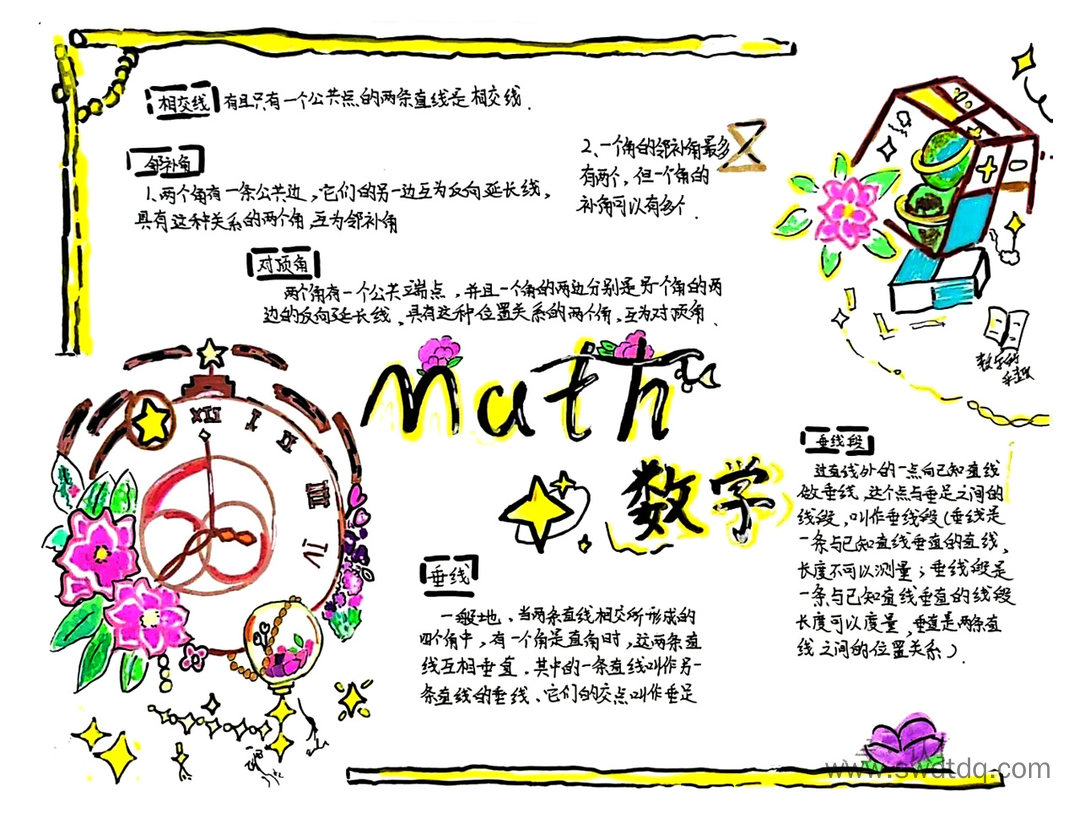 相交线 有且只有一个公共点的两条直线是相交线.
邻补角
1、两个角有一条公共边，它们的另一边互为反向延长线，
具有这种关系的两个角，互为邻补角
2、一个角的邻补角最多
有两个，但一个角的
补角可以有多个.
对顶角
两个角有一个公共端点，并且一个角的两边分别是另一个角的两
边的反向延长线、具有这种位置关系的两个角，互为对顶角.
数学的
Math
数学
XII
I
II
III
IV
垂线
一般地，当两条直线相交所形成的
四个角中，有一个角是直角时，这两条直
线互相垂直.其中的一条直线叫作另一
条直线的垂线、它们的交点叫作垂足
垂线段
过直线外的一点向已知直线
做垂线，这个点与垂足之间的
线段，叫作垂线段(垂线是
一条与已知直线垂直的直线，
长度不可以测量；垂线段是
一条与已知直线垂直的线段
长度可以度量，垂直是两条直
线之间的位置关系).
www.swdtdq.com